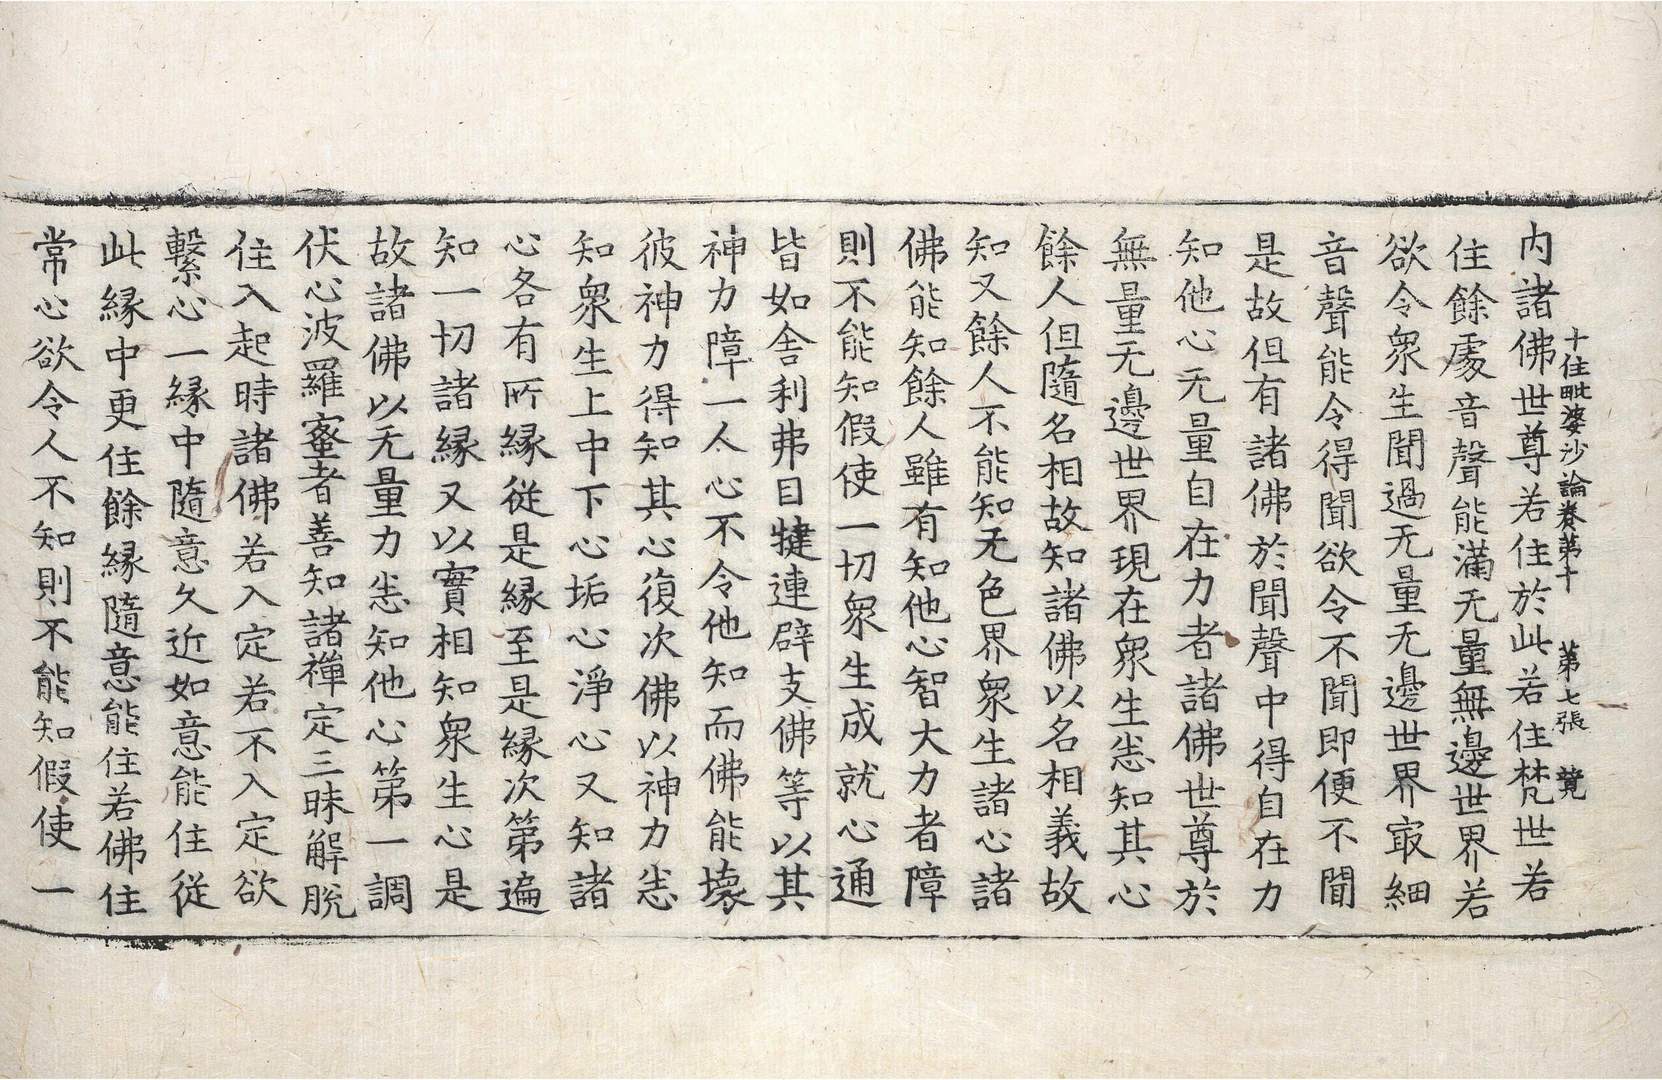 十住毗婆沙論卷第十　第七張　競
内諸佛世尊若住於此若住梵世若
住餘處音聲能滿无量無邊世界若
欲令衆生聞過无量无邊世界㝡細
音聲能令得聞欲令不聞即便不聞
是故但有諸佛於聞聲中得自在力
知他心无量自在力者諸佛世尊於
無量无邊世界現在衆生悉知其心
餘人但隨名相故知諸佛以名相義故
知又餘人不能知无色界衆生諸心諸
佛能知餘人雖有知他心智大力者障
則不能知假使一切衆生成就心通
皆如舍利弗目揵連辟支佛等以其
神力障一人心不令他知而佛能壞
彼神力得知其心復次佛以神力悉
知衆生上中下心垢心淨心又知諸
心各有所緣從是緣至是緣次第遍
知一切諸緣又以實相知衆生心是
故諸佛以无量力悉知他心第一調
伏心波羅蜜者善知諸禪定三昧解脫
住入起時諸佛若入定若不入定欲
繫心一緣中隨意久近如意能住從
此緣中更住餘緣隨意能住若佛住
常心欲令人不知則不能知假使一